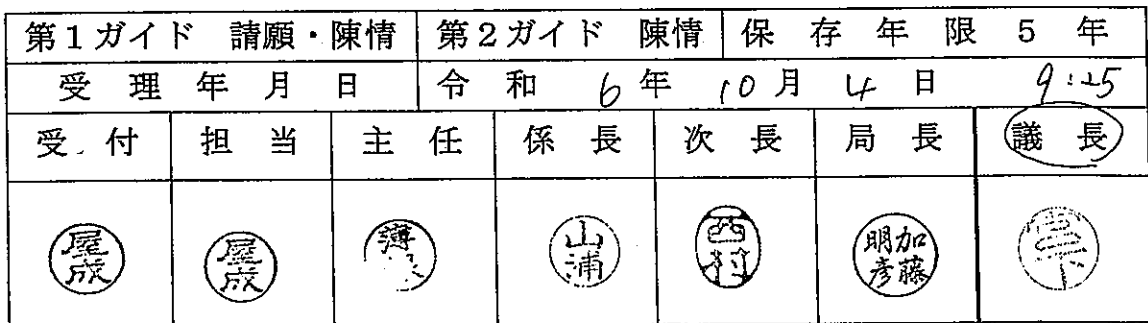 第1ガイド 請願・陳情 第2ガイド 陳情 保存年限 5年
受理年月日 令和 6年 10月 4日 9:25
受付 担当 主任 係長 次長 局長 議長
屋成 屋成 山浦 西村 加藤明彦